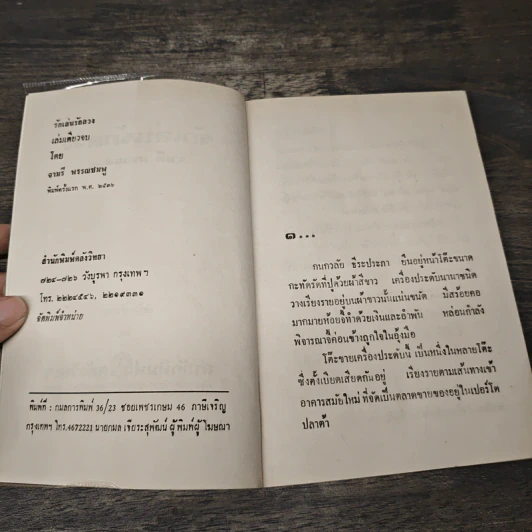 รักเล่นรักลวง
เล่มเดียวจบ
โดย
จามรี พรรณชมพู
พิมพ์ครั้งแรก พ.ศ. ๒๕๓๖
สำนักพิมพ์คลังวิทยา
๗๒๔-๗๒๖ วังบูรพา กรุงเทพฯ
โทร. ๒๒๒๔๕๔๖, ๒๒๑๙๓๓๑
จัดพิมพ์จำหน่าย
พิมพ์ที่ : กมลการพิมพ์ 36/23 ซอยเพชรเกษม 46 ภาษีเจริญ
กรุงเทพฯ โทร.4672221 นายกมล เจียระสุพัฒน์ ผู้พิมพ์ผู้โฆษณา
๑...
กนกวลัย ธีระประภา ยืนอยู่หน้าโต๊ะขนาด
กะทัดรัดที่ปูด้วยผ้าสีขาว เครื่องประดับนานาชนิด
วางเรียงรายอยู่บนผ้าขาวนั้นแน่นขนัด มีสร้อยคอ
มากมายห้อยจี้ทำด้วยเงินและอำพัน หล่อนกำลัง
พิจารณาจี้ค่อนข้างถูกใจในอุ้งมือ
โต๊ะขายเครื่องประดับนี้ เป็นหนึ่งในหลายโต๊ะ
ซึ่งตั้งเบียดเสียดกันอยู่ เรียงรายตามเส้นทางเข้า
อาคารสมัยใหม่ ที่จัดเป็นตลาดขายของอยู่ในเปอร์โต
ปลาต้า